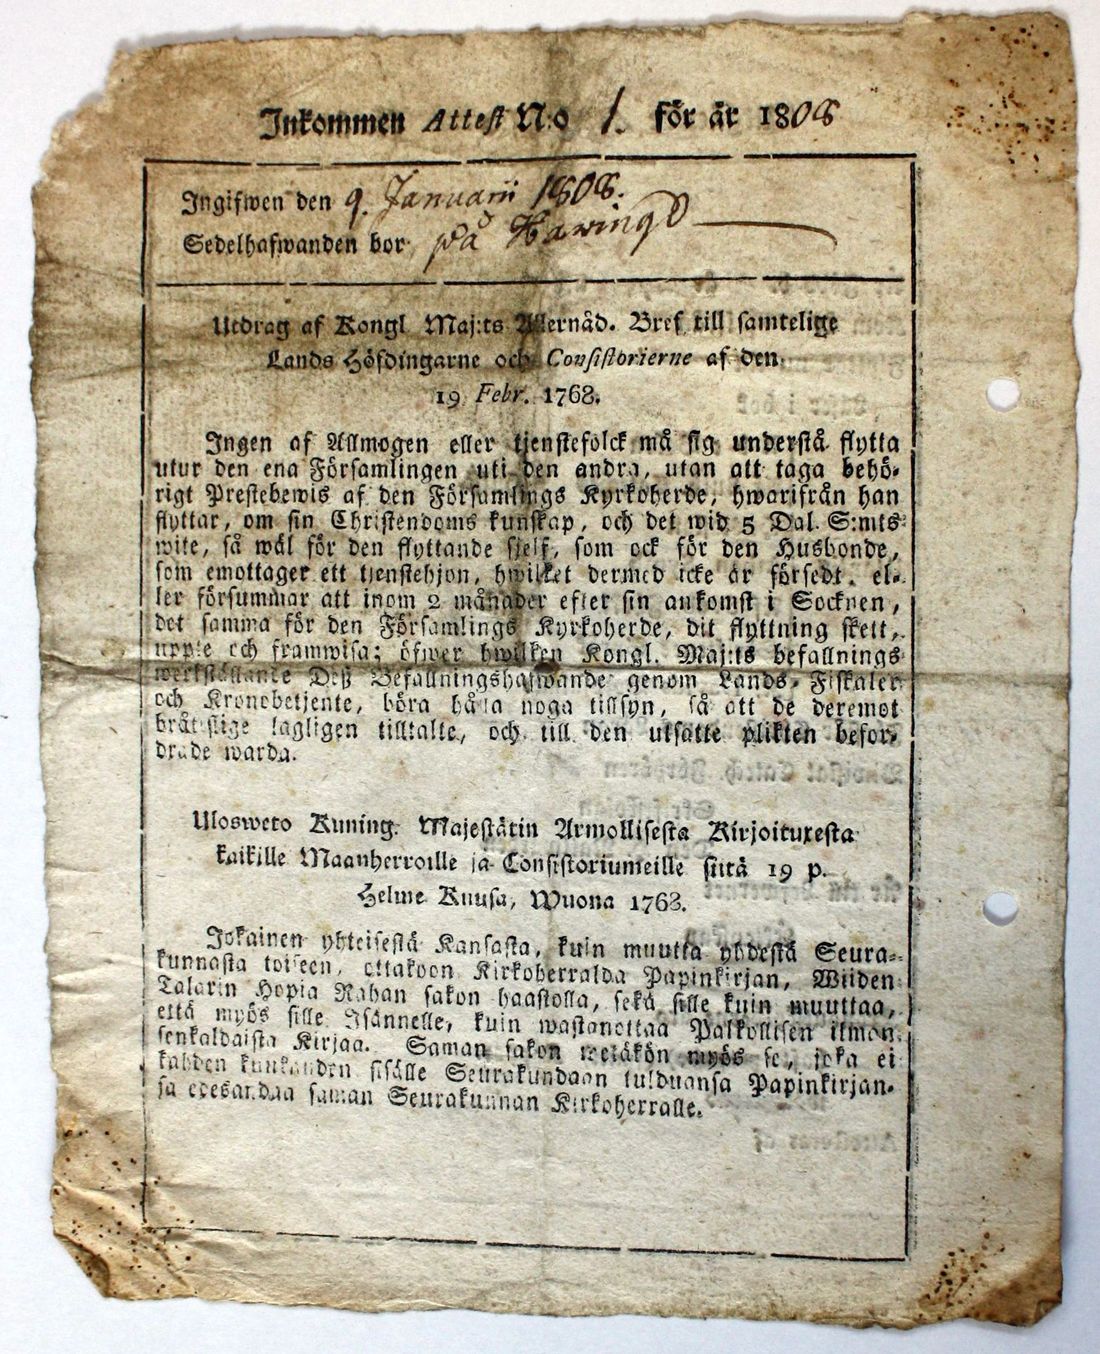 Inkommen Attest N:o 1. för år 1808
Ingifwen den 9. Januarii 1808.
Sedelhafwanden bor på Hawings
Utdrag af Kongl Maj:ts Allernåd. Bref till samtelige
Lands Höfdingarne och Consistorierne af den
19 Febr. 1768.
Ingen af Allmogen eller tjenstefolck må sig understå flytta
utur den ena Församlingen uti den andra, utan att taga behö-
rigt Prestebewis af den Församlings Kyrkoherde, hwarifrån han
flyttar, om sin Christendoms kunskap, och det wid 5 Dal. S:mts
wite, så wäl för den flyttande sjelf, som ock för den Husbonde,
som emottager ett tjenstehjon, hwilket dermed icke är försedt, el-
ler försummar att inom 2 månader efter sin ankomst i Socknen,
det samma för den Församlings Kyrkoherde, dit flyttning skett,
uppte och framwisa; öfwer hwilken Kongl. Maj:ts befallnings
werkställante Deß Befallningshafwande genom Lands-Fiskaler
och Kronobetjente, böra hålla noga tillsyn, så att de deremot
brätslige lagligen tilltalte, och till den utsatte plikten befor-
drade warda.
Ulosweto Kuning. Majestätin Armollisesta Kirjoituxesta
kaikille Maanherroille ja Consistoriumeille siitä 19 p.
Helme Kuusa, Wuona 1768.
Jokainen yhteisestä Kansasta, kuin muutta yhdestä Seura-
kunnasta toiseen, ottakoon Kirkoherralda Papinkirjan, Wiiden
Talarin Hopia Rahan sakon haastolla, sekä sille kuin muuttaa,
että myös sille Isännelle, kuin wastanottaa Palkollisen ilman
senkaldaista Kirjaa. Saman sakon wetäkön myös se, joka ei
kahden kuukauden sisälle Seurakundaan tulduansa Papinkirjan-
sa edesandaa saman Seurakunnan Kirkoherralle.